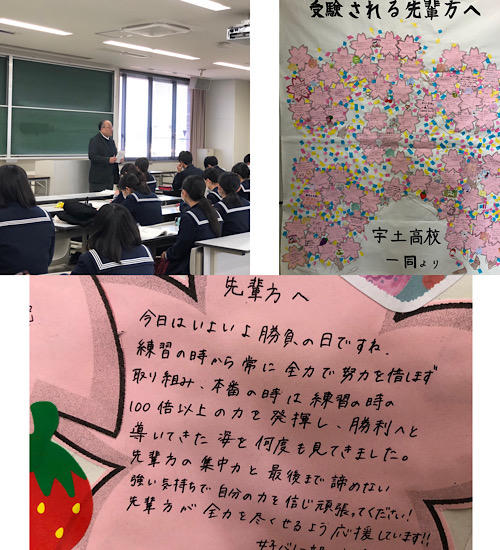 受験される先輩方へ
宇土高校
一同より
先輩方へ
今日はいよいよ勝負の日ですね。
練習の時から常に全力で努力を惜しまず
取り組み、本番の時は練習の時の
100倍以上の力を発揮し、勝利へと
導いてきた姿を何度も見てきました。
先輩方の集中力と最後まで諦めない
強い気持ちで自分の力を信じ頑張ってください！
先輩方が全力を尽くせるよう応援しています!!